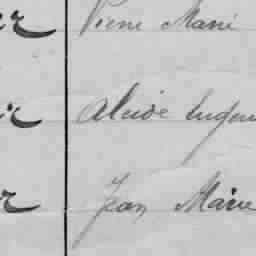 Pierre Marie
Alcide Eugen
Jean Marie